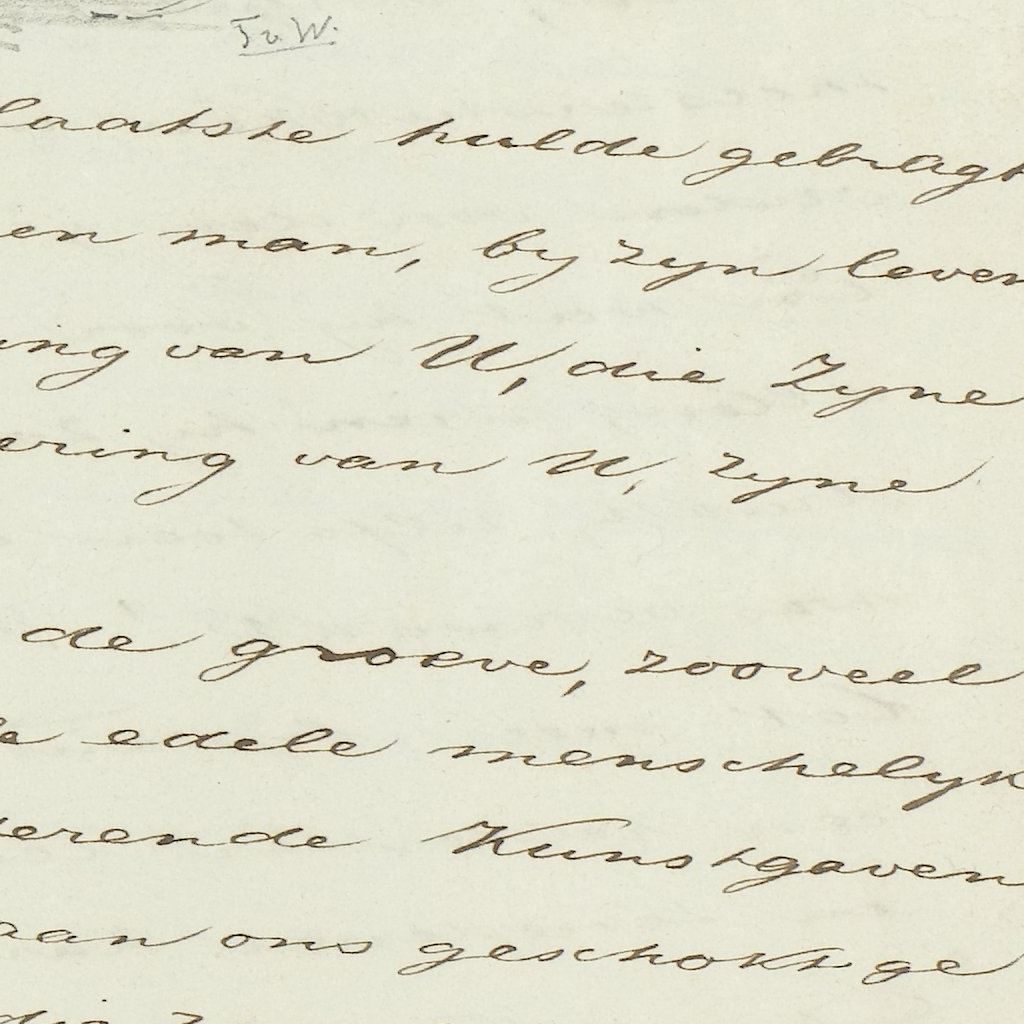 T. v. W.
laatste hulde gebragt
en man, by zyn leven
ing van U, die Zyne
ering van U, zyne
de groeve, zooveel
le edele menschelyk
erende Kunstgaven
aan ons geschokt ge
die